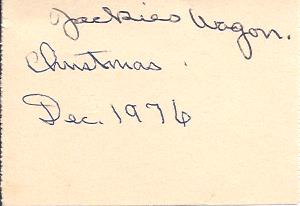 Jackies Wagon.
Christmas
Dec. 1976